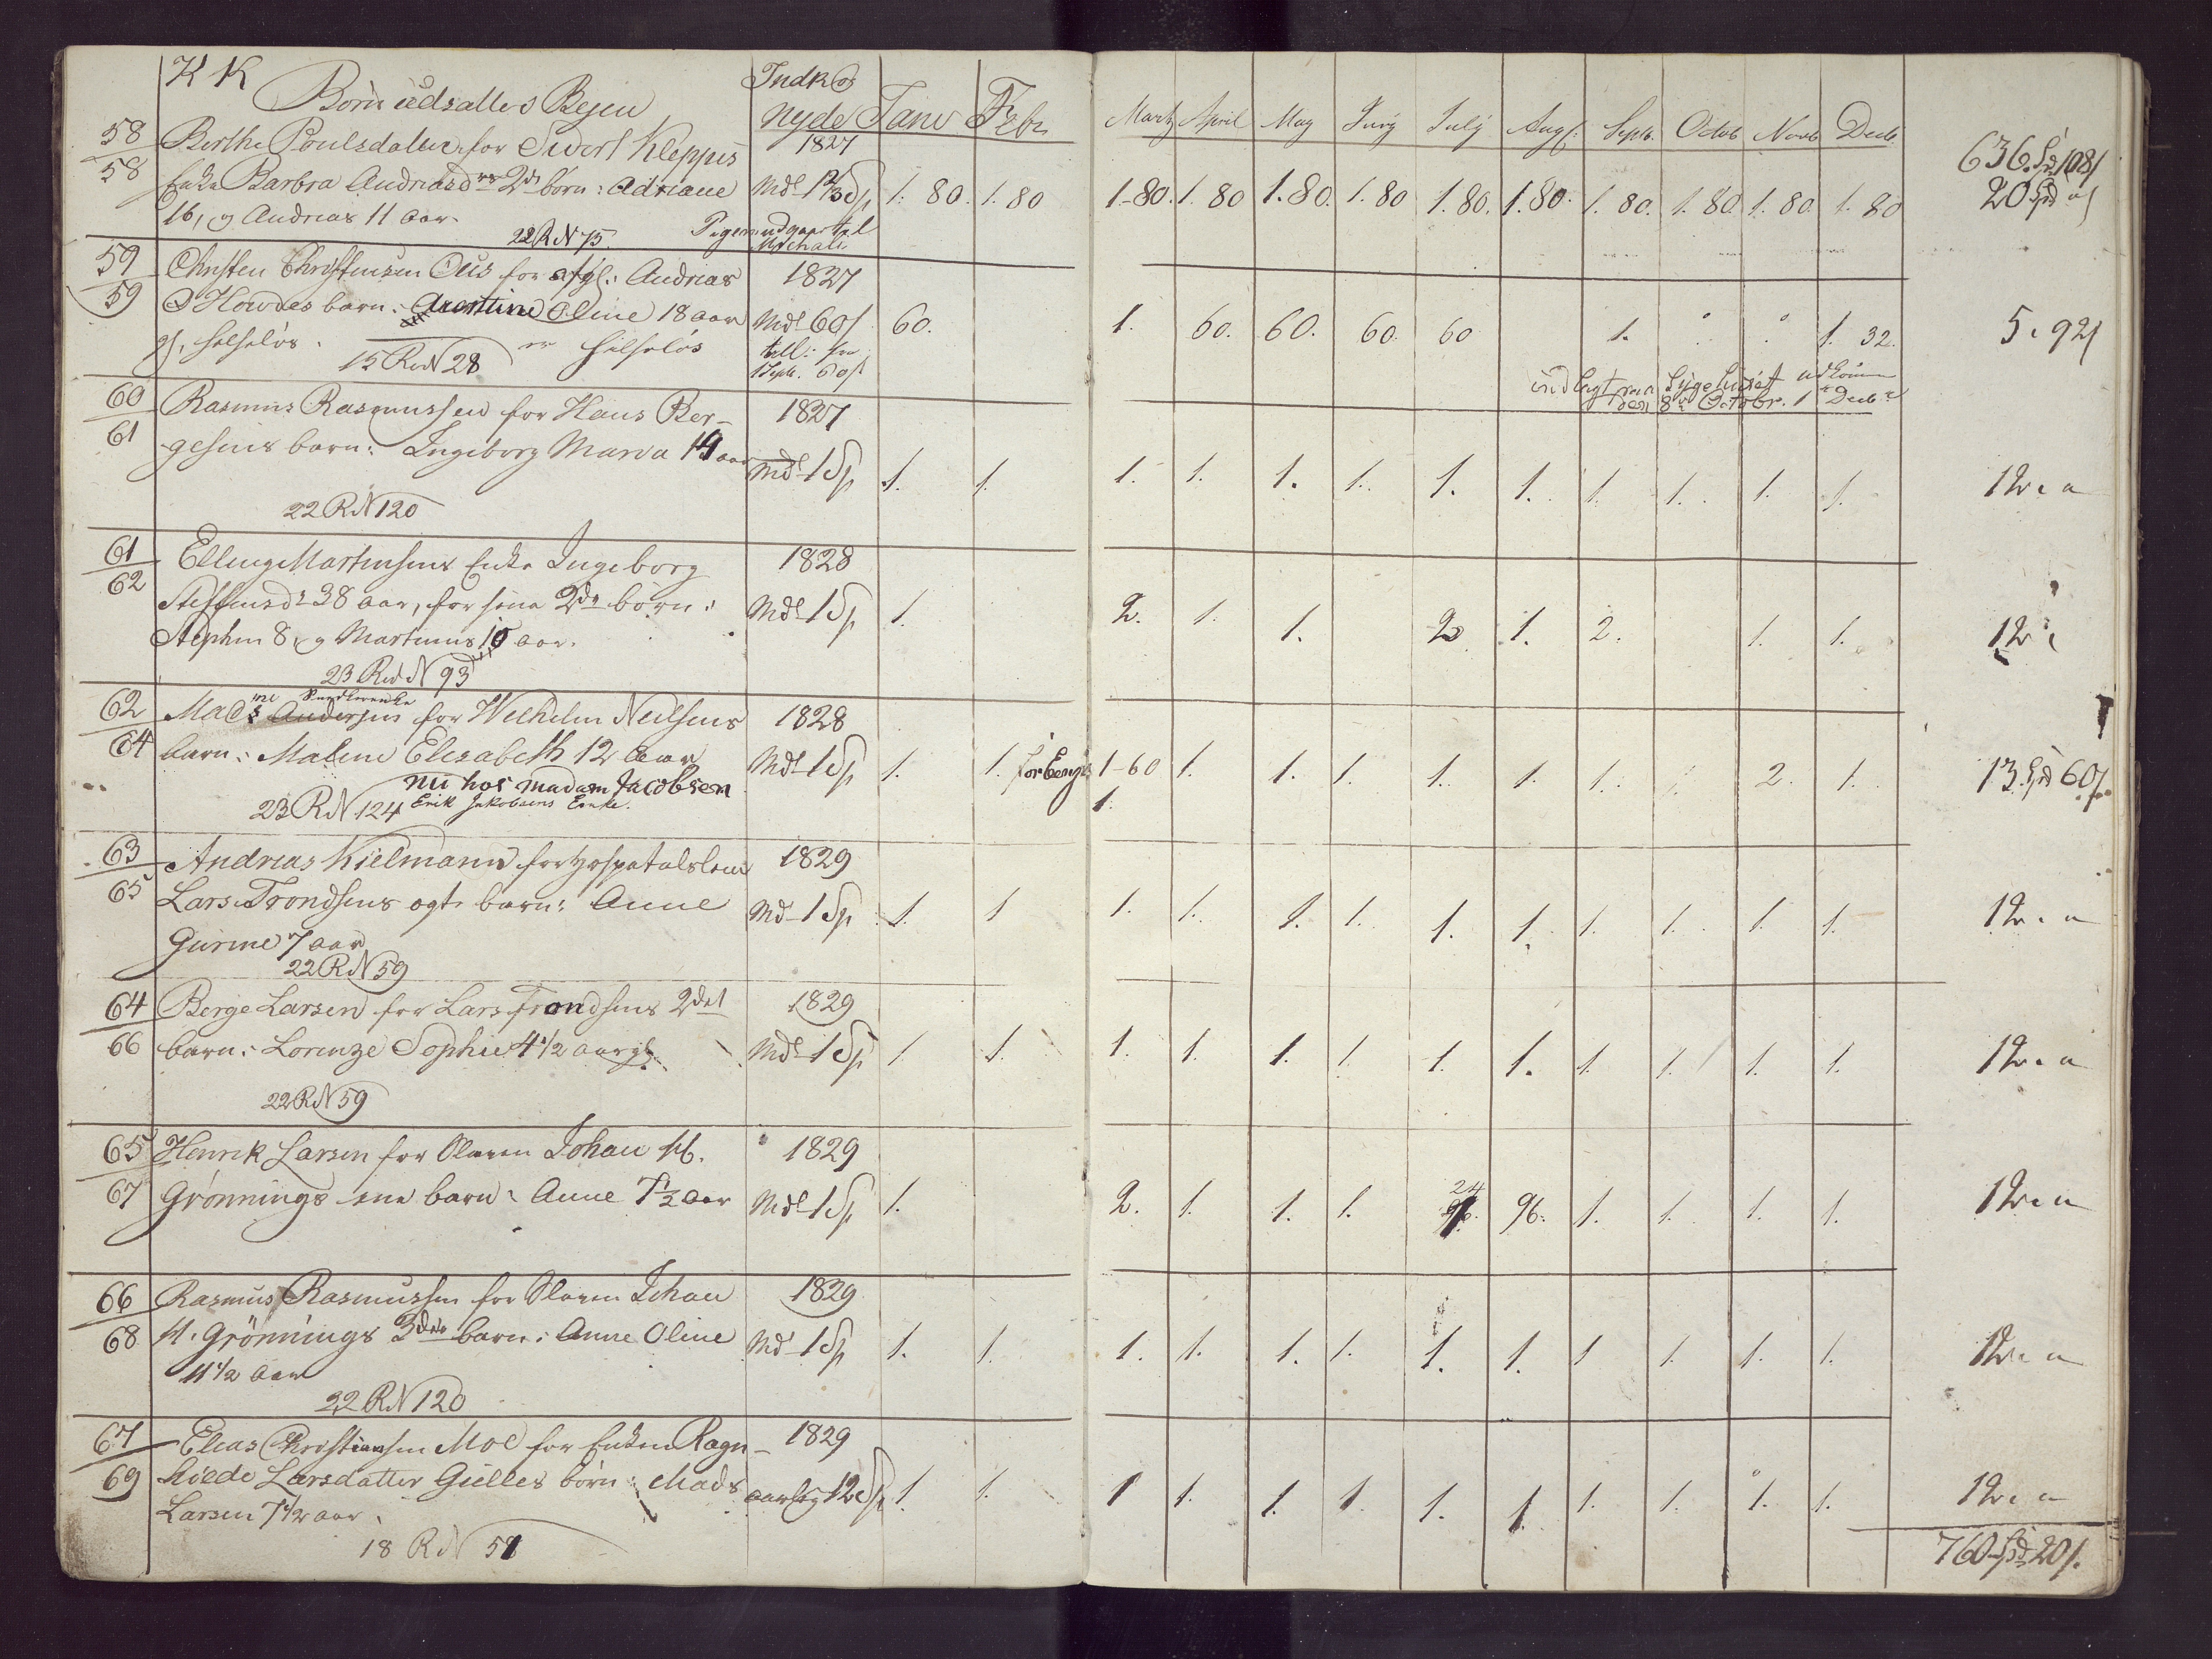 K K
Börn udsattes Bejen
Indk og
nyde Janv Febr Marty April May Juny July Augs: Septr. Octob Novb Decb
58
58
Berthe Poulsdatter for Sivert Kleppes
Enke Barbra Andriasd 2de börn: Adriane
16, og Andrias 11 aar.
22 R N 75. Pigen udgaar til Michali
1827
Mdl 1 2/3 Sp 1. 80. 1. 80 1-80. 1. 80 1. 80. 1. 80 1. 80. 1. 80. 1. 80. 1. 80. 1. 80 1. 80
636 Spd 108 s
20 Spd
59
59
Christen Christensen Ous for afg: Andrias
O Howdes barn: Oline 18 aar
helselös. er helselös
15 Rod N 28
1827
Mdl 60 s
till: fra
1 Septr. 60 s
60. 1. 60. 60. 60. 60 1. 1. 32.
5. 92 s
indlagt paa Sygehuset udkom
den 8de Octobr. 1 Decbr
60
61
Rasmus Rasmussen for Hans Ber-
gesens barn: Ingeborg Maria 14 aar
22 R N 120
1827
Mdl 1 Sp 1. 1. 1. 1. 1. 1. 1. 1. 1. 1. 1. 1.
12. "
61
62
Elling Martinsens Enke Ingeborg
Steffensdr 38 aar, for sine 2de börn:
Stephen 8, og Martinus 10 aar.
23 Rod N 93
1828
Mdl 1 Sp 1. 2. 1. 1. 2 1. 2. 1. 1.
12 "
62
64
Mad for Wilhelm Neilsens
barn: Malene Elisabeth 12 aar
nu hos madam Jacobsen
23 R N 124 Erik Jakobsens Enke.
1828
Mdl 1 Sp 1. 1. for Beng 1-60 1. 1. 1. 1. 1. 1. 2. 1.
1.
13 Spd 60 s
63
65
Andreas Kielmann for Hospitalslem
Lars Trondsens ægte barn: Anne
Gurine 7 aar
22 R N 59
1829
Md 1 Sp 1. 1 1. 1. 1. 1. 1. 1. 1. 1. 1. 1.
12. "
64
66
Berge Larsen for Lars Trondsens 2det
barn: Lorenze Sophie 4 1/2 aar gl.
22 R N 59
1829
Mdl 1 Sp 1. 1. 1. 1. 1. 1. 1. 1. 1. 1. 1. 1.
12. "
65
67
Henrik Larsen for Slaven Johan H.
Grönnings ene barn: Anne 7 1/2 aar
1829
Mdl 1 Sp 1. 2. 1. 1. 1. 24 96. 1. 1. 1. 1.
12. "
66
68
Rasmus Rasmussen for Slaven Johan
H. Grönnings 3die barn: Anne Oline
11 1/2 aar
22 R N 120
1829
Md 1 Sp 1. 1. 1. 1. 1. 1. 1. 1. 1 1. 1. 1.
12. "
67
69
Elias Christiansen Moe for Enken Ragn-
hilde Larsdatter Gielles börn: Mads
Larsen 7 1/2 aar.
18 R N 51
1829
aarlig 12 Sp 1. 1. 1 1. 1. 1. 1. 1. 1. 1. 1. 1.
12. "
760 Spd 20 s.